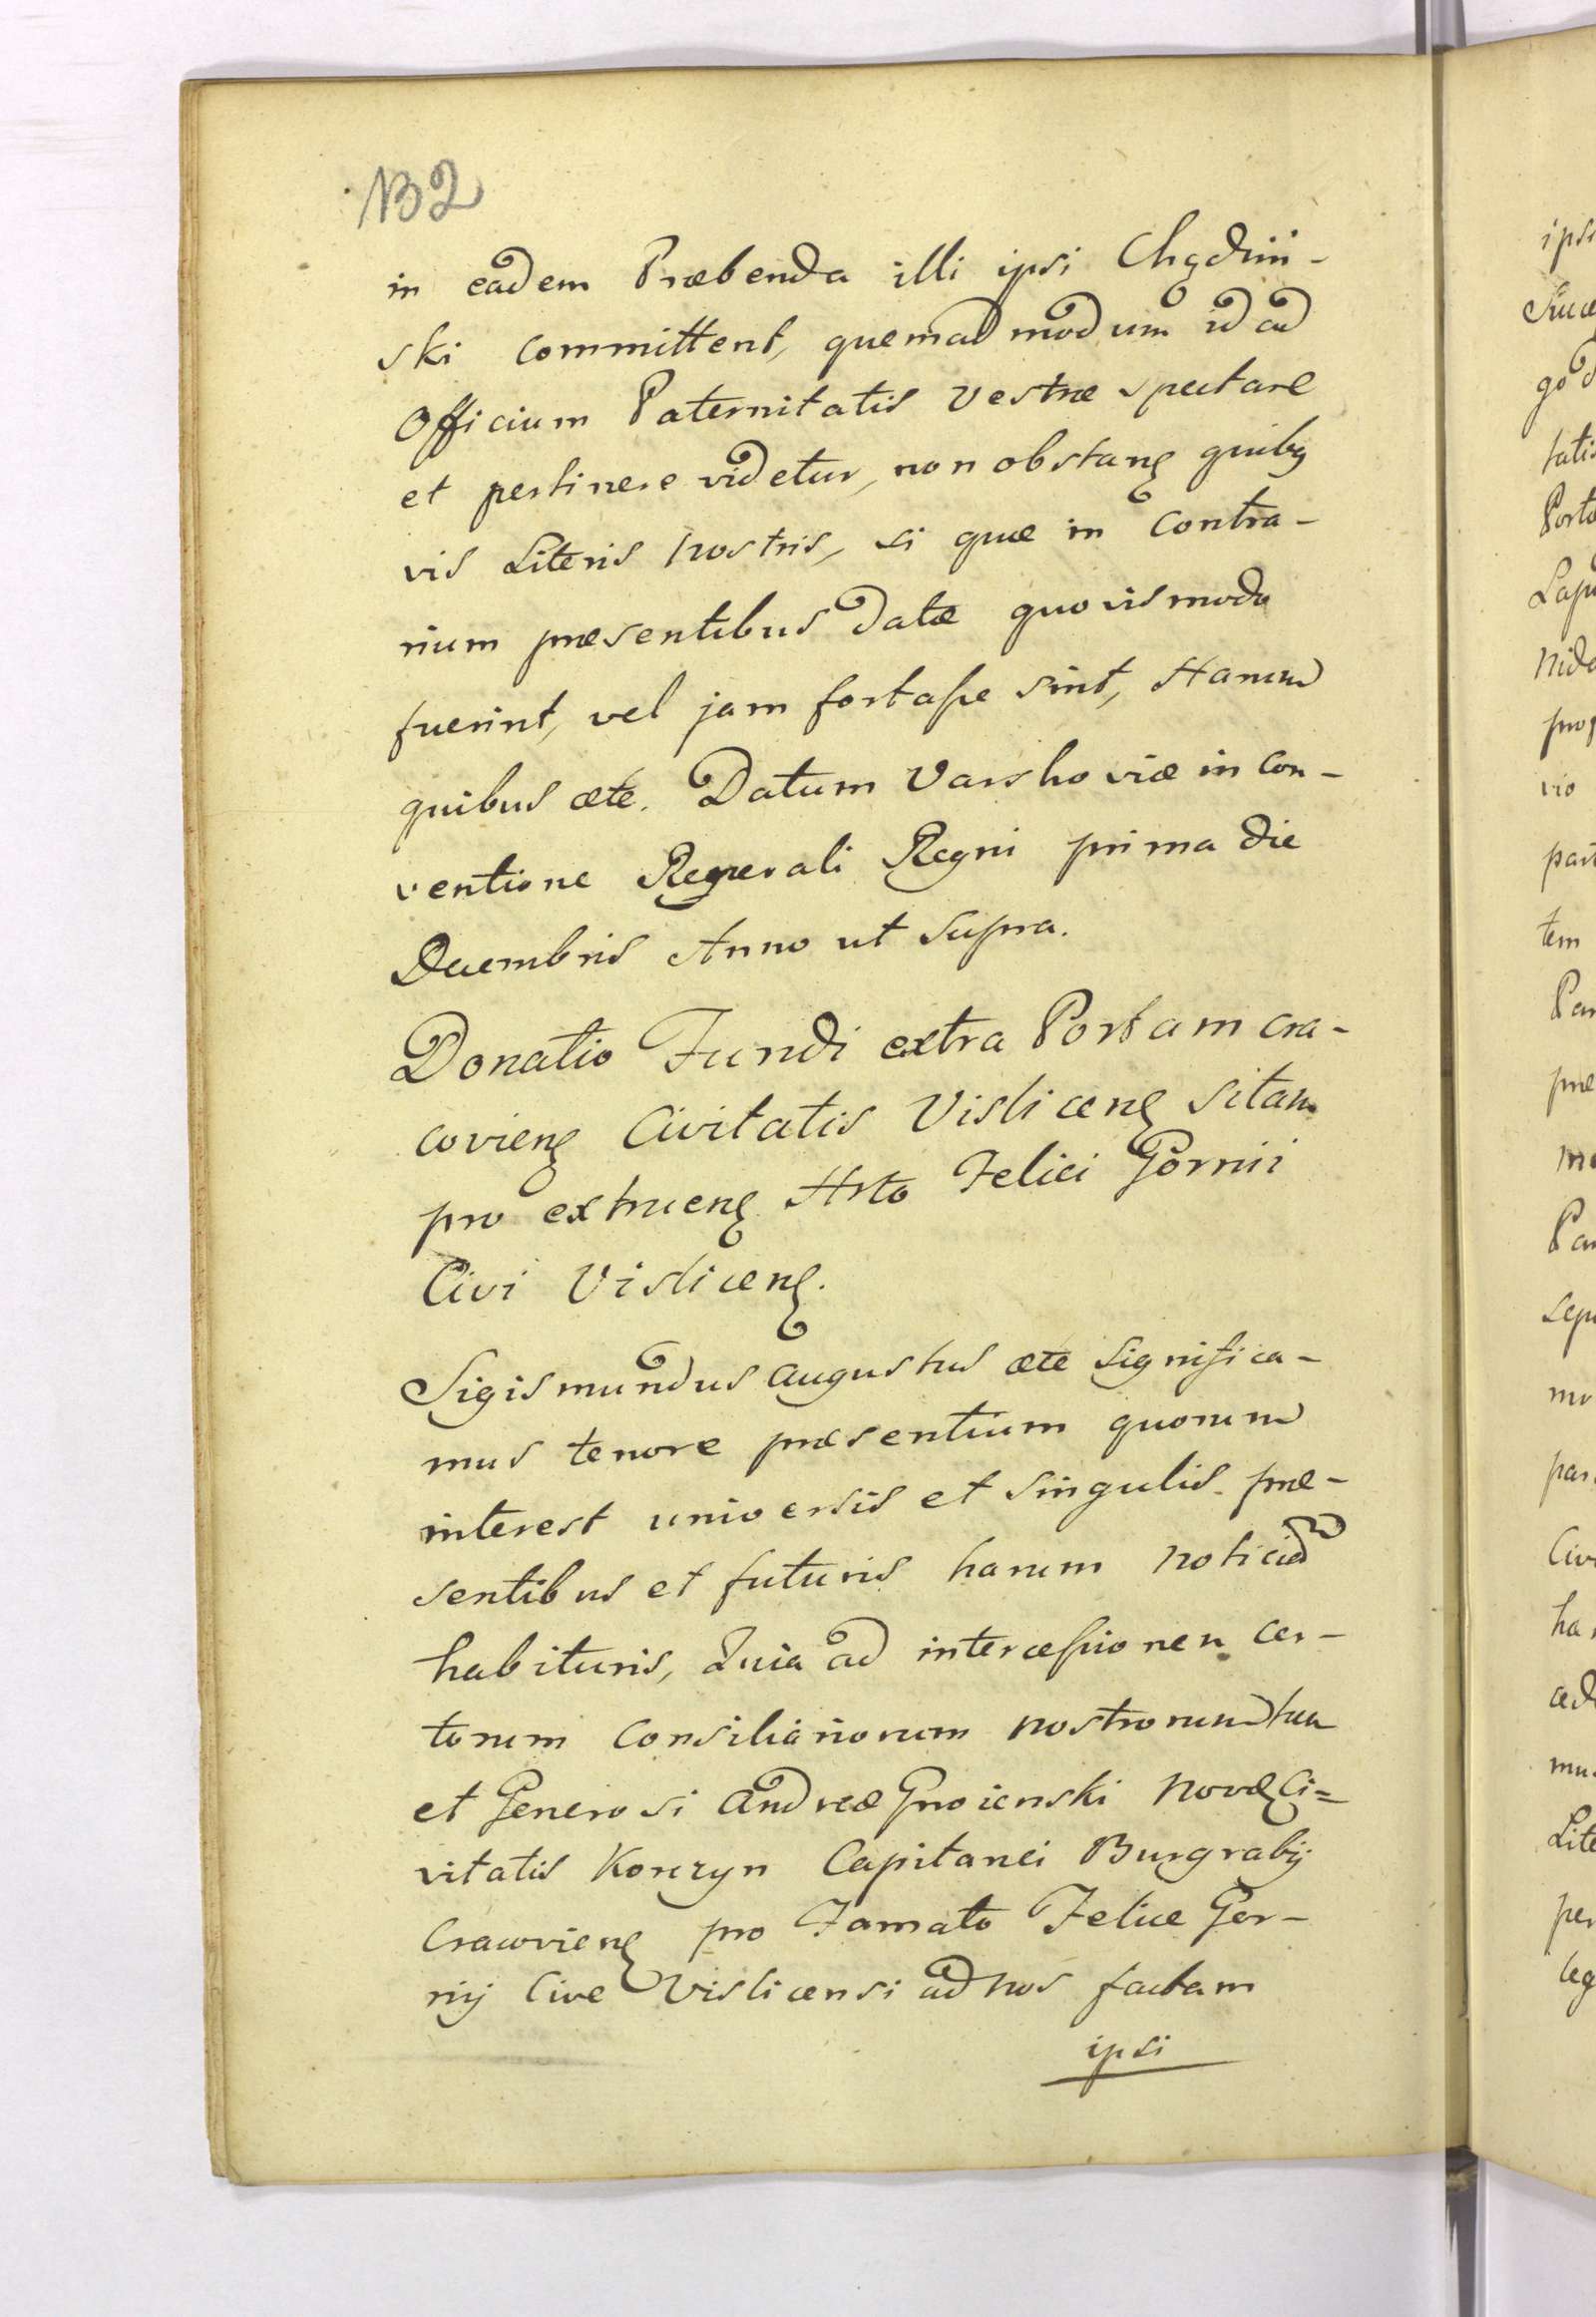 132
in eadem Præbenda illi ipsi Chądzin-
ski committent, quemadmodum id ad
Officium Paternitatis Vestræ spectare
et pertinere videtur, non obstanꝭ quibꝫ
vis Literis Nostris, si quæ in Contra-
rium præsentibus datæ quovismodo
fuerint, vel jam fortasse sint, Harum
quibus ætc. Datum Varshoviæ in Con-
ventione Regnerali Regni prima die
Decembris Anno ut Supra.
Donatio Fundi extra Portam Cra-
covienꝭ Civitatis Vislicenꝭ Sitam
pro extruenꝭ Hrto Felici Gornii
Civi Vislicenꝭ.
Sigismundus Augustus ætc Significa-
mus tenore præsentium quorum
interest universis et singulis præ-
sentibus et futuris harum noticiam
habituris, Quia ad intercessionem cer-
torum Consiliariorum nostrorum
et Generosi Andreæ Gnoienski Novæ Ci=
vitatis Korczyn Capitanei Burgrabij
Cracovienꝭ pro Famato Felice Gor-
nij Cive Vislicensi ad nos factam
ipsi
ipsi
go
tati
Porto
nid
vio
part
tem
Pa
præ
Pa
mo
per